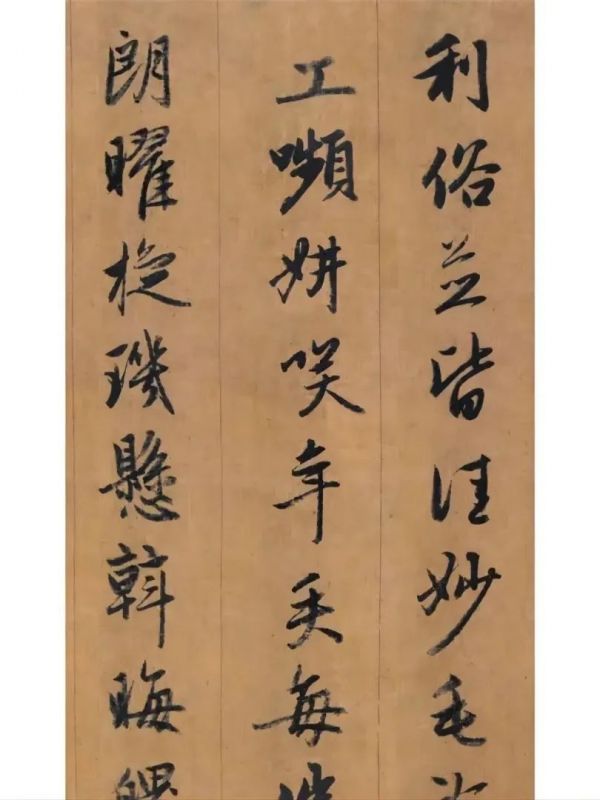 利俗並皆佳妙毛
工嚬妍咲年矢每
朗曜琁璣懸斡晦